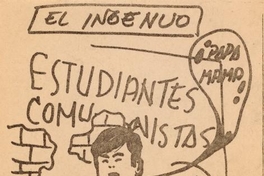 EL INGENUO
¡PAPA
MAMA!
ESTUDIANTES
COMU NISTAS